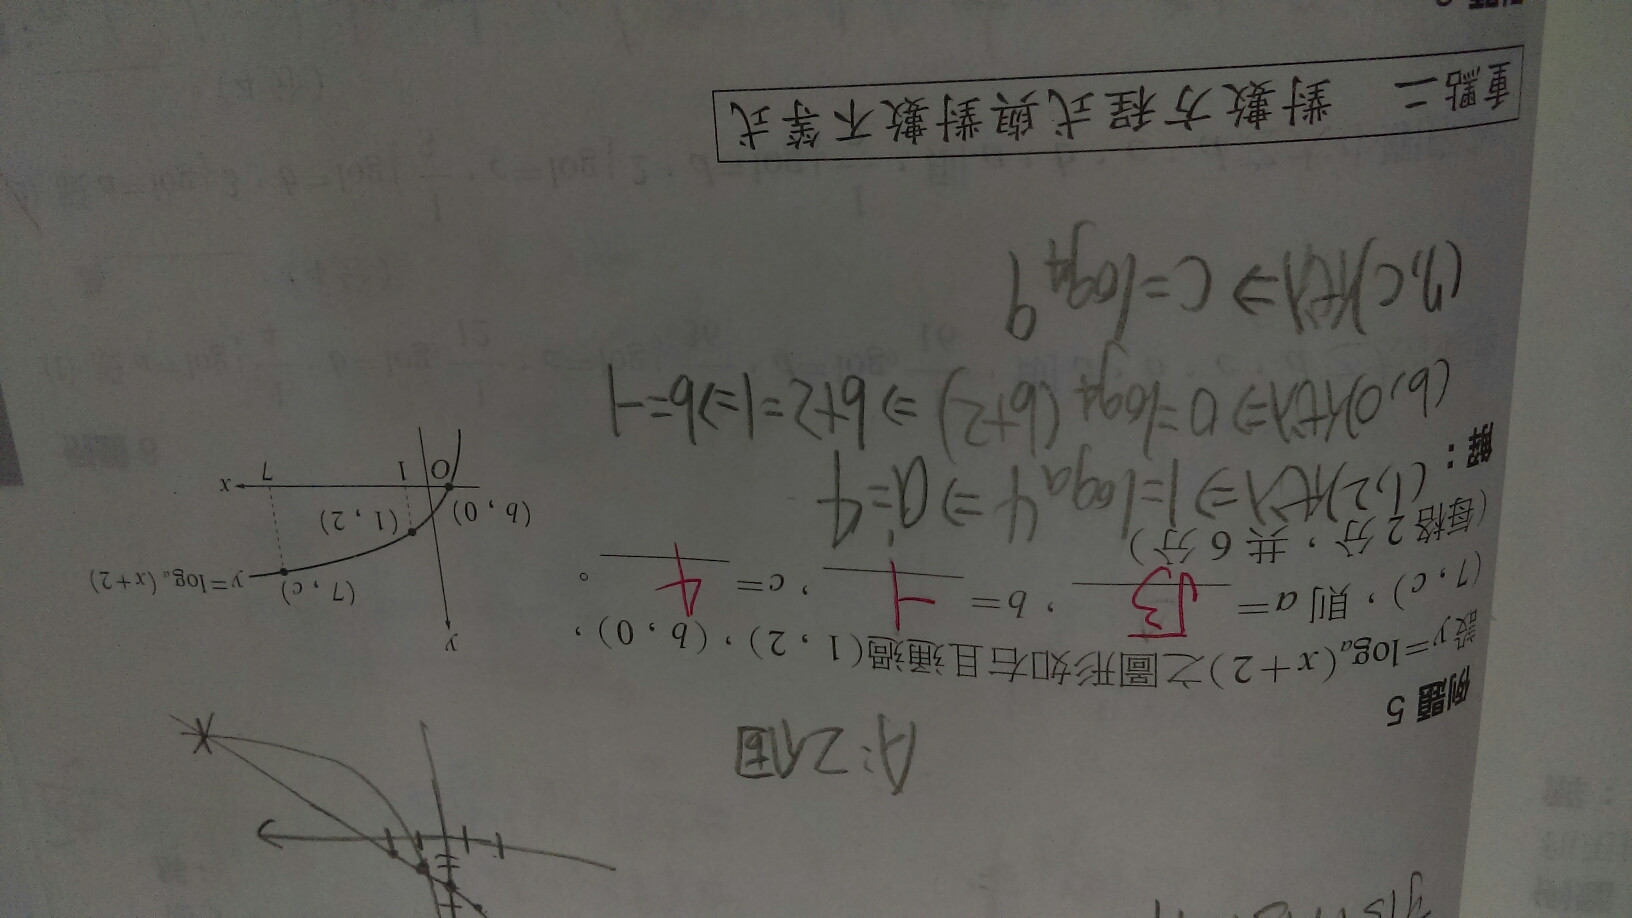 A:2個
例題 5
設 y=logₐ(x+2)之圖形如右且通過(1,2),(b,0),
(7,c),則 a= √3 ,b= -1 ,c= 4 。
(每格 2 分,共 6 分)
解:
(1,2)代入⇒1=logₐ4⇒a=4
(b,0)代入⇒0=log₄(b+2)⇒b+2=1⇒b=-1
(7,c)代入⇒c=log₄9
y
(7,c)
y=logₐ(x+2)
(1,2)
(b,0)
O
1
7
x
重點二 對數方程式與對數不等式